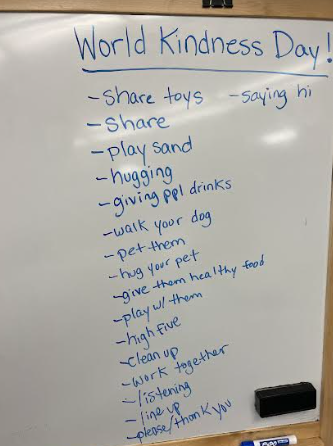 World Kindness Day!
- share toys - saying hi
- share
- play sand
- hugging
- giving ppl drinks
- walk your dog
- pet them
- hug your pet
- give them healthy food
- play w/ them
- high five
- clean up
- work together
- listening
- line up
- please/thank you
EXPO